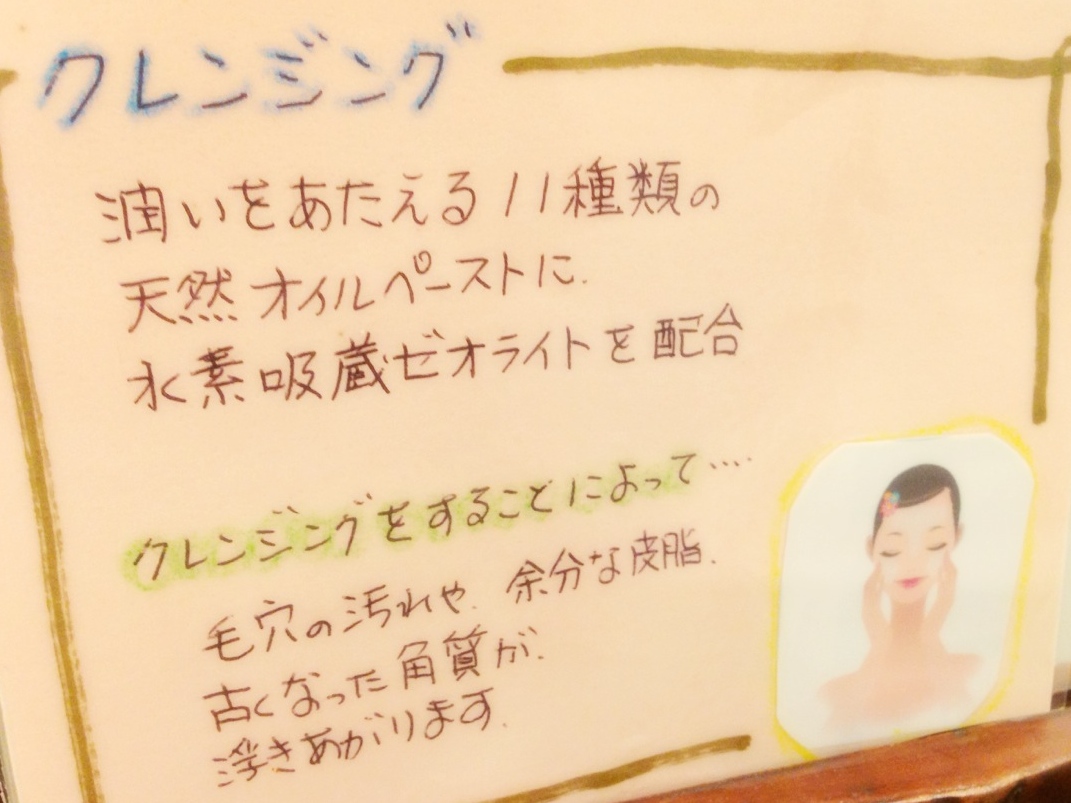 クレンジング
潤いをあたえる11種類の
天然オイルペーストに、
水素吸蔵ゼオライトを配合
クレンジングをすることによって‥‥
毛穴の汚れや、余分な皮脂、
古くなった角質が、
浮きあがります。